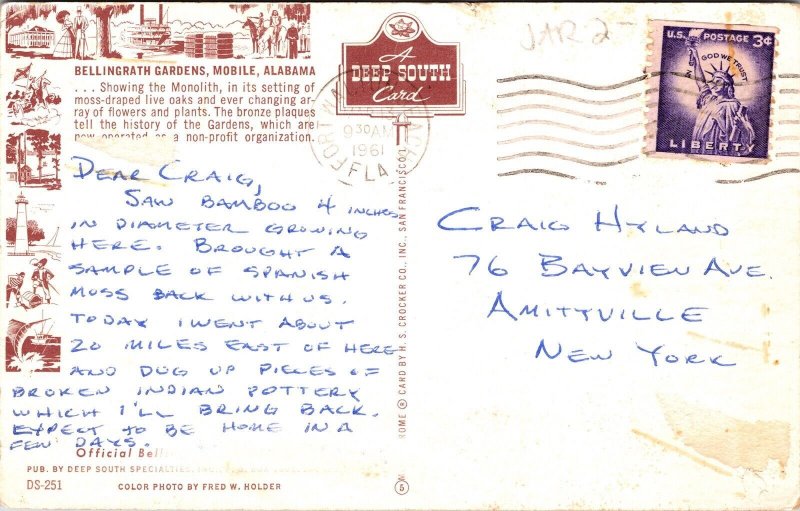 BELLINGRATH GARDENS, MOBILE, ALABAMA
. . . Showing the Monolith, in its setting of
moss-draped live oaks and ever changing ar-
ray of flowers and plants. The bronze plaques
tell the history of the Gardens, which are
now operated as a non-profit organization.
DEAR CRAIG,
SAW BAMBOO 4 INCHES
IN DIAMETER GROWING
HERE. BROUGHT A
SAMPLE OF SPANISH
MOSS BACK WITH US.
TODAY I WENT ABOUT
20 MILES EAST OF HERE
AND DUG UP PIECES OF
BROKEN INDIAN POTTERY
WHICH I'LL BRING BACK.
EXPECT TO BE HOME IN A
FEW DAYS.
Official Bell
PUB. BY DEEP SOUTH SPECIALTIES,
DS-251 COLOR PHOTO BY FRED W. HOLDER
A
DEEP SOUTH
Card
9 30 AM
1961
FLA
CARD BY H. S. CROCKER CO., INC., SAN FRANCISCO
5
JAR 2
U.S. POSTAGE 3¢
IN GOD WE TRUST
LIBERTY
CRAIG HYLAND
76 BAYVIEW AVE.
AMITYVILLE
NEW YORK